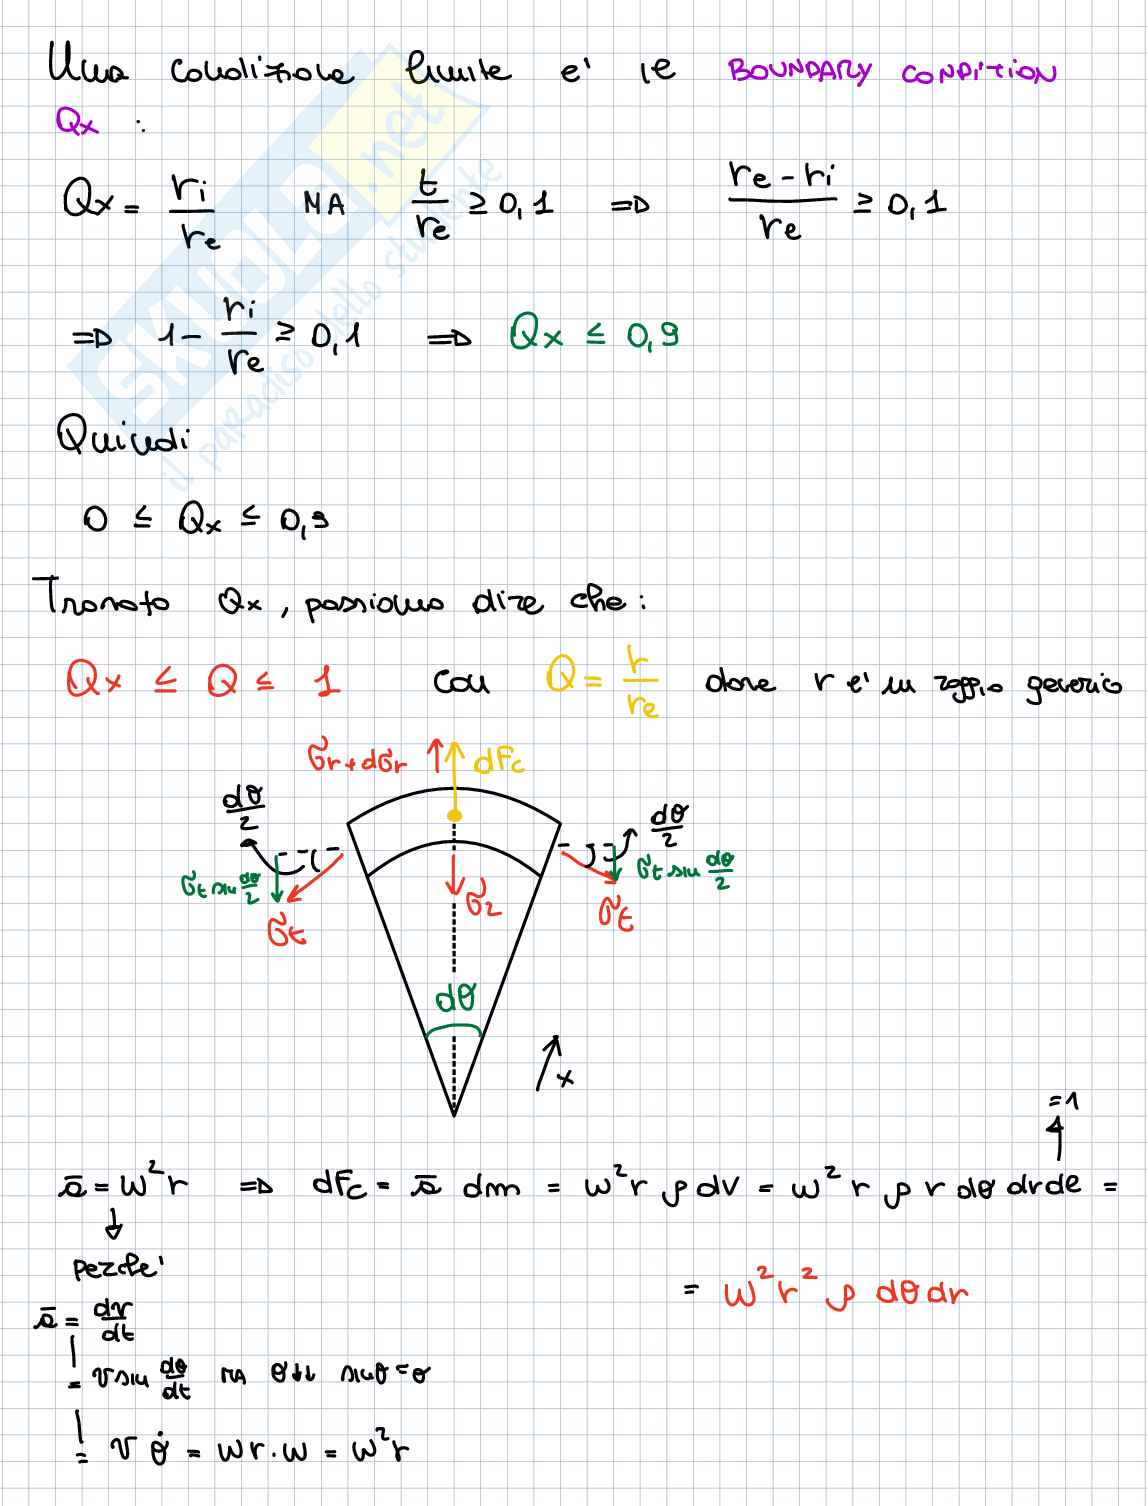 Una condizione limite e' le BOUNDARY CONDITION
Qx :
Qx = ri/re MA t/re ≥ 0,1 => (re - ri)/re ≥ 0,1
=> 1 - ri/re ≥ 0,1 => Qx ≤ 0,9
Quindi
0 ≤ Qx ≤ 0,9
Trovato Qx, possiamo dire che:
Qx ≤ Q ≤ 1 con Q = r/re dove r e' un raggio generico
σr + dσr dFc
dθ/2 dθ/2
σt sin dθ/2 σt sin dθ/2
σt σ2 σt
dθ
x
=1
ā = ω²r => dFc = ā dm = ω²r ρ dV = ω² r ρ r dθ dr de =
perche'
= ω²r² ρ dθ dr
ā = dv/dt
= v sin dθ/dt MA θ↓↓ sinθ=θ
= v θ̇ = ωr.ω = ω²r
SKUOLA.net
il paradiso dello studente